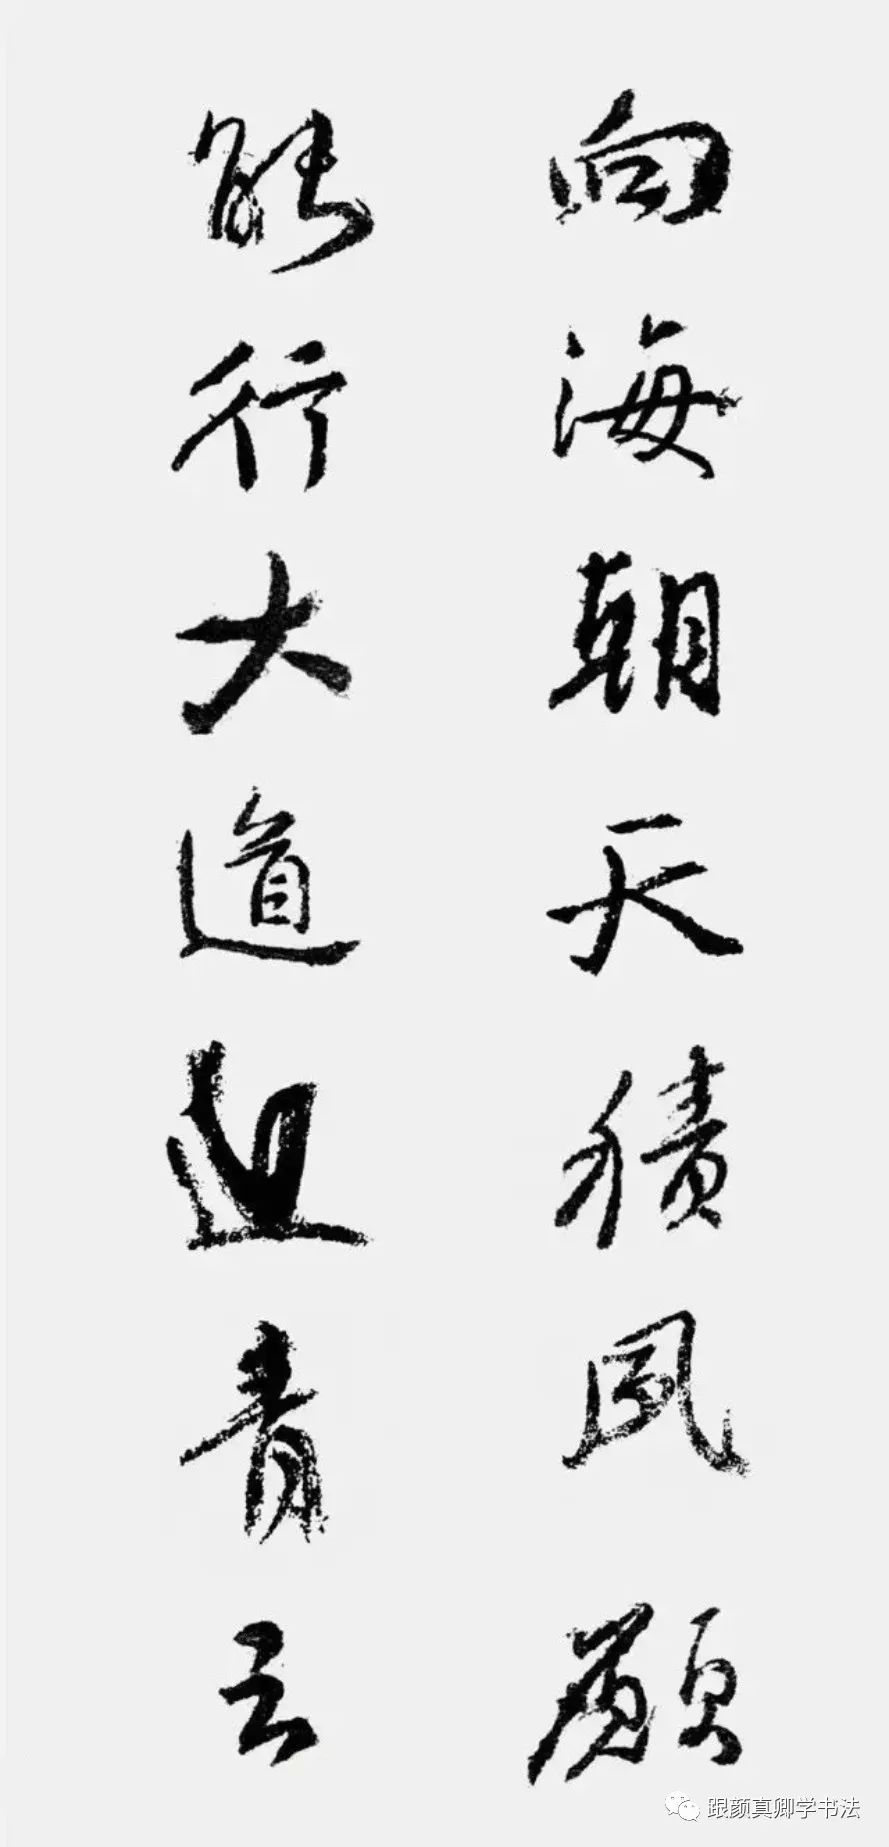 向海朝天積夙願
能行大道迎青云
跟颜真卿学书法